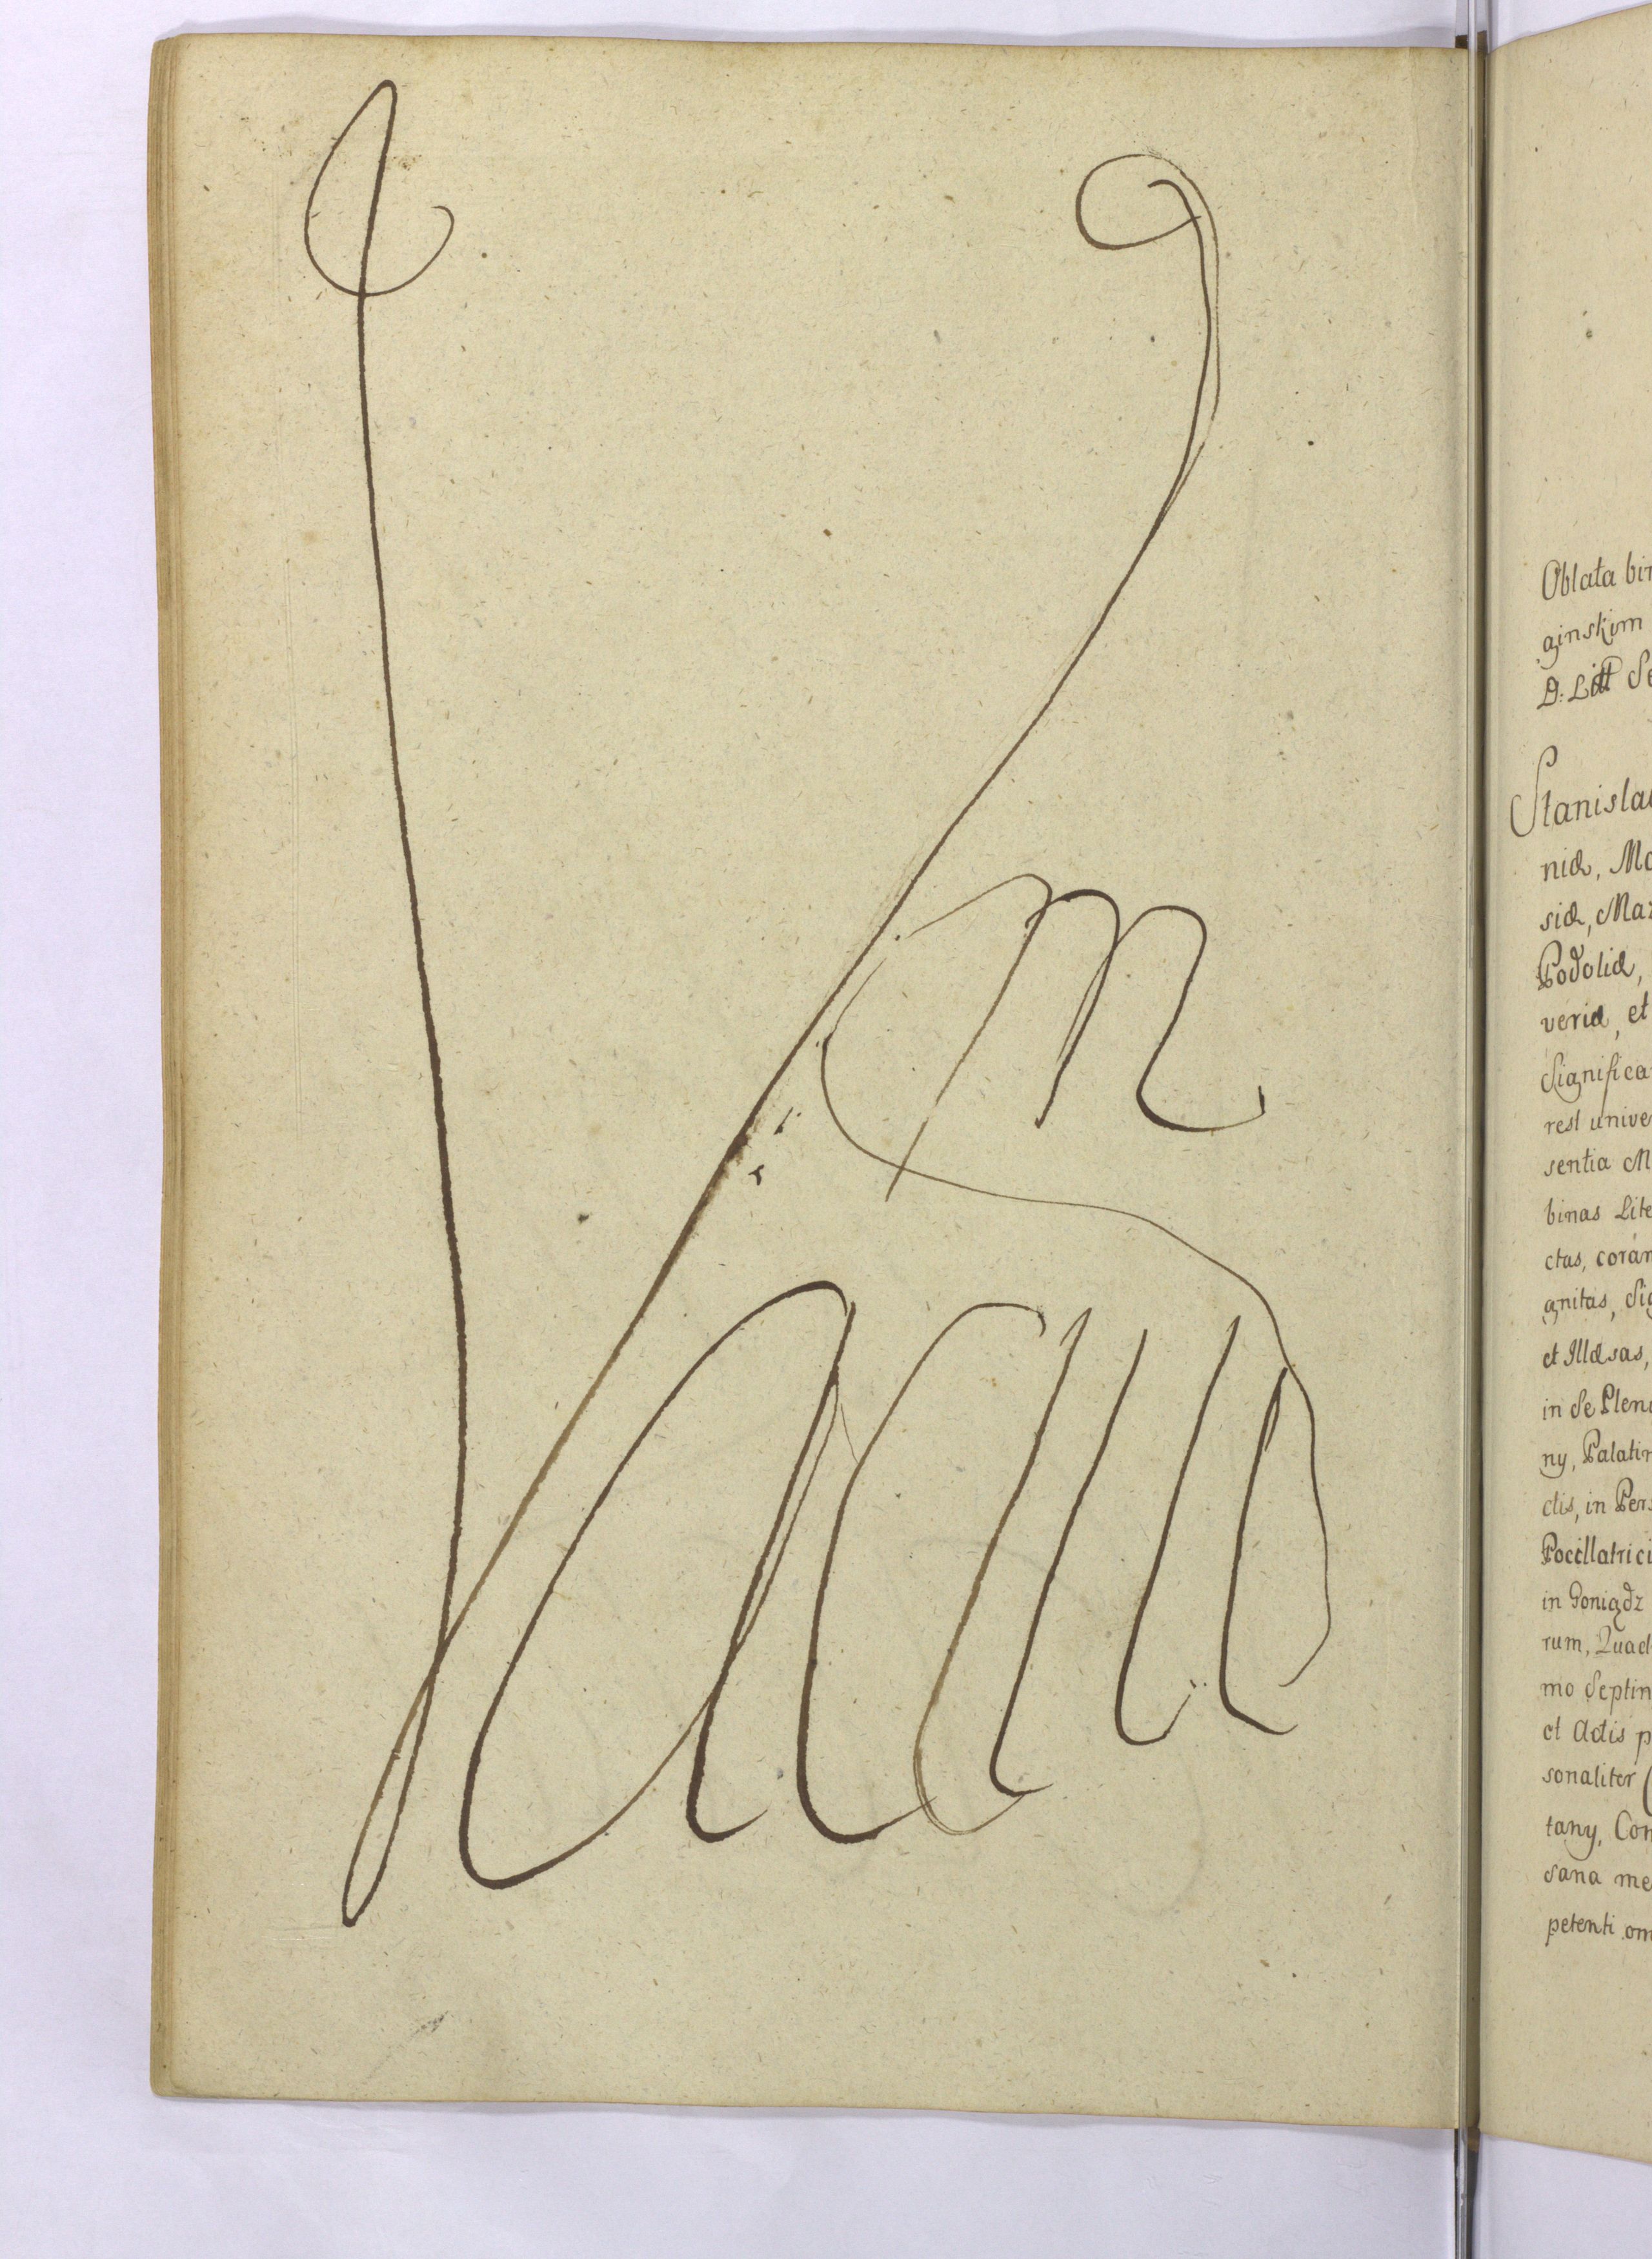 Vacuum
Oblata bin
ginskim
D: Litt Se
Stanislau
niæ, Mo
siæ, Maz
Podoliæ,
veriæ, et
Significa
rest unive
sentia M
binas Lite
ctas, corám
gnitas, Sig
et Illæsas,
in se Plen
ny, Palatin
ctis, in Pers
Pocillatrici
in Goniądz
rum, Quad
mo Septin
et Actis p
sonaliter (
tany, Con
sana me
petenti om